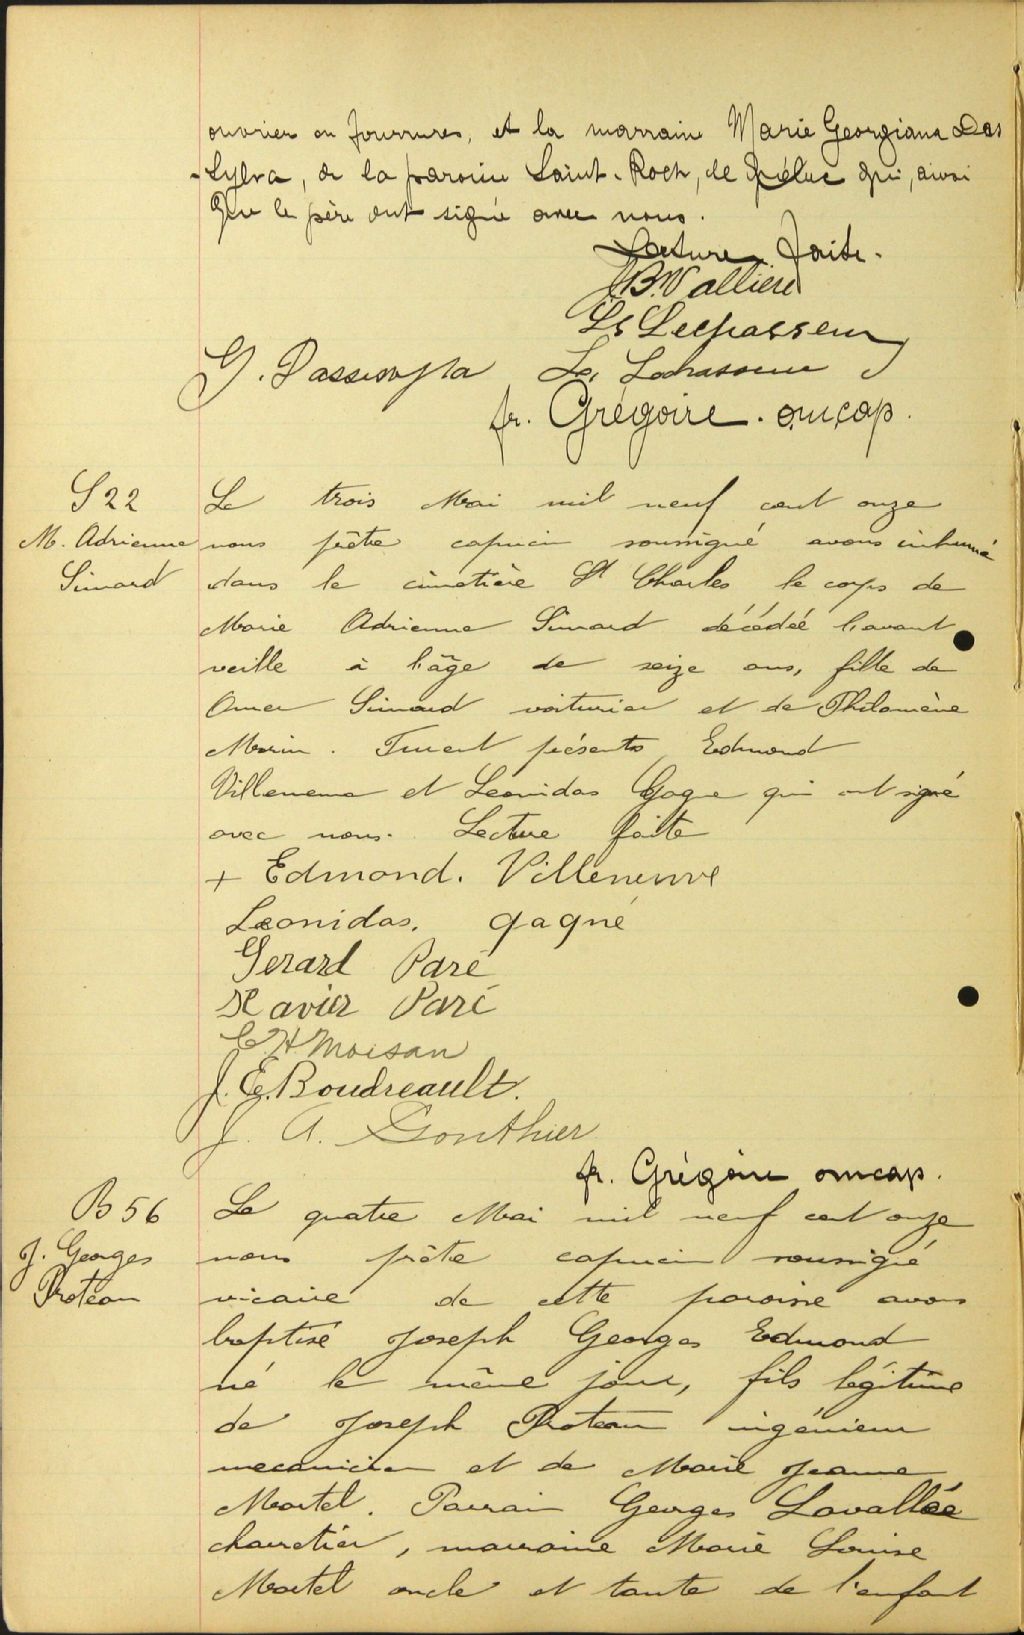 ouvrier en fourrures, et la marraine Marie Georgiana Das
Sylva, de la paroisse Saint-Roch, de Québec qui, ainsi
que le père ont signé avec nous.
Lecture faite.
J B. Vallière
Ls Levasseur
G. Dassesylva Ls. Levasseur
fr. Grégoire. o.m.cap.
S 22
M. Adrienne
Simard
Le trois Mai mil neuf cent onze
nous prêtre capucin soussigné avons inhumé
dans le cimetière St Charles le corps de
Marie Adrienne Simard décédée l'avant
veille à l'âge de seize ans, fille de
Omer Simard voiturier et de Philomène
Morin. Furent présents Edmond
Villeneuve et Leonidas Gagne qui ont signé
avec nous. Lecture faite
+ Edmond. Villeneuve
Leonidas. gagné
Gerard Paré
Xavier Paré
E H Moisan
J. E. Boudreault.
J. A. Gonthier
fr. Grégoire o.m.cap.
B 56
J. Georges
Proteau
Le quatre Mai mil neuf cent onze
nous prêtre capucin soussigné
vicaire de cette paroisse avons
baptisé Joseph Georges Edmond
né le même jour, fils légitime
de Joseph Proteau ingénieur
mecanicien et de Marie Jeanne
Martel. Parrain Georges Lavallée
charretier, marraine Marie Louise
Martel oncle et tante de l'enfant